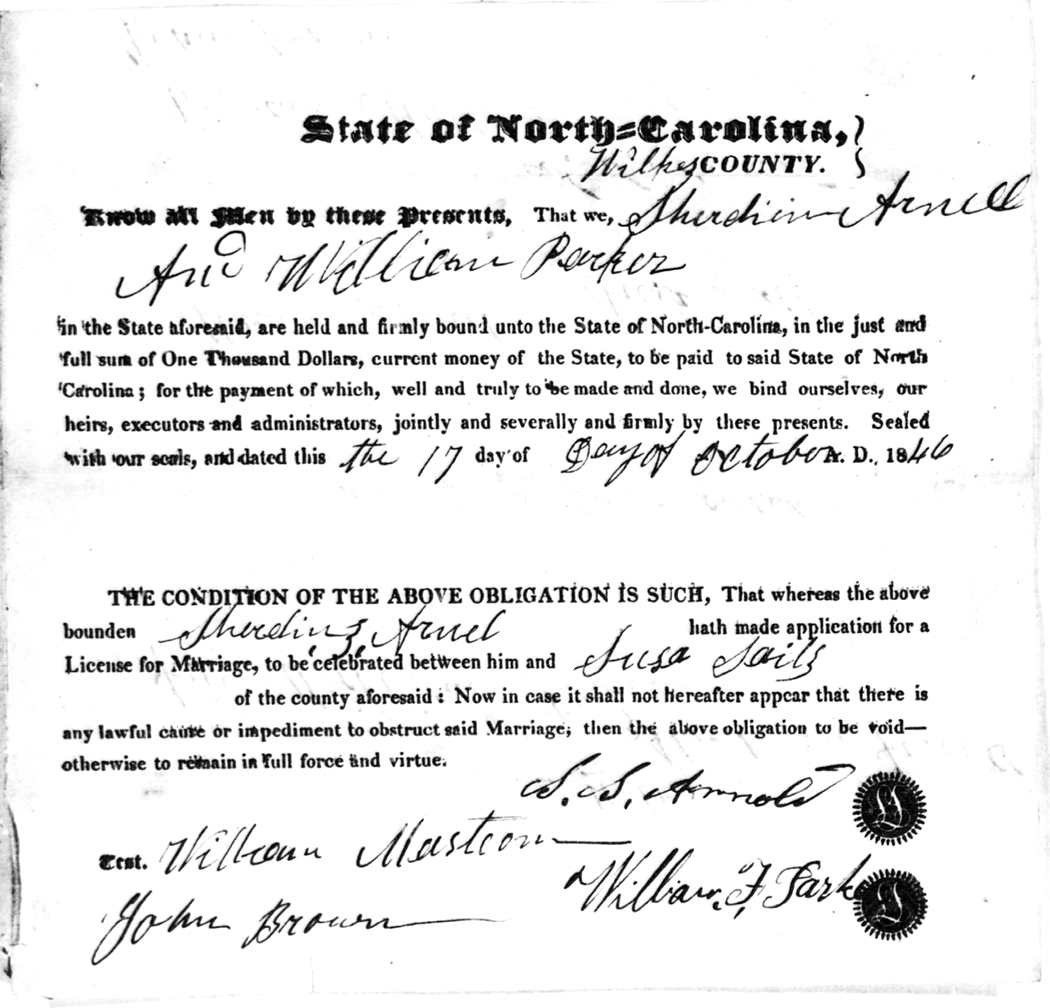 State of North-Carolina,
Wilkes COUNTY.
Know all Men by these Presents, That we, Sherdiin Arnell
And William Parker
in the State aforesaid, are held and firmly bound unto the State of North-Carolina, in the just and
full sum of One Thousand Dollars, current money of the State, to be paid to said State of North
Carolina; for the payment of which, well and truly to be made and done, we bind ourselves, our
heirs, executors and administrators, jointly and severally and firmly by these presents. Sealed
with our seals, and dated this the 17 day of Day of October A. D., 1846
THE CONDITION OF THE ABOVE OBLIGATION IS SUCH, That whereas the above
bounden Sherding Arnel hath made application for a
License for Marriage, to be celebrated between him and Susa Sails
of the county aforesaid: Now in case it shall not hereafter appear that there is
any lawful cause or impediment to obstruct said Marriage; then the above obligation to be void—
otherwise to remain in full force and virtue.
S. S. Arnnold
Test. William Masteon
William F. Park
John Brown